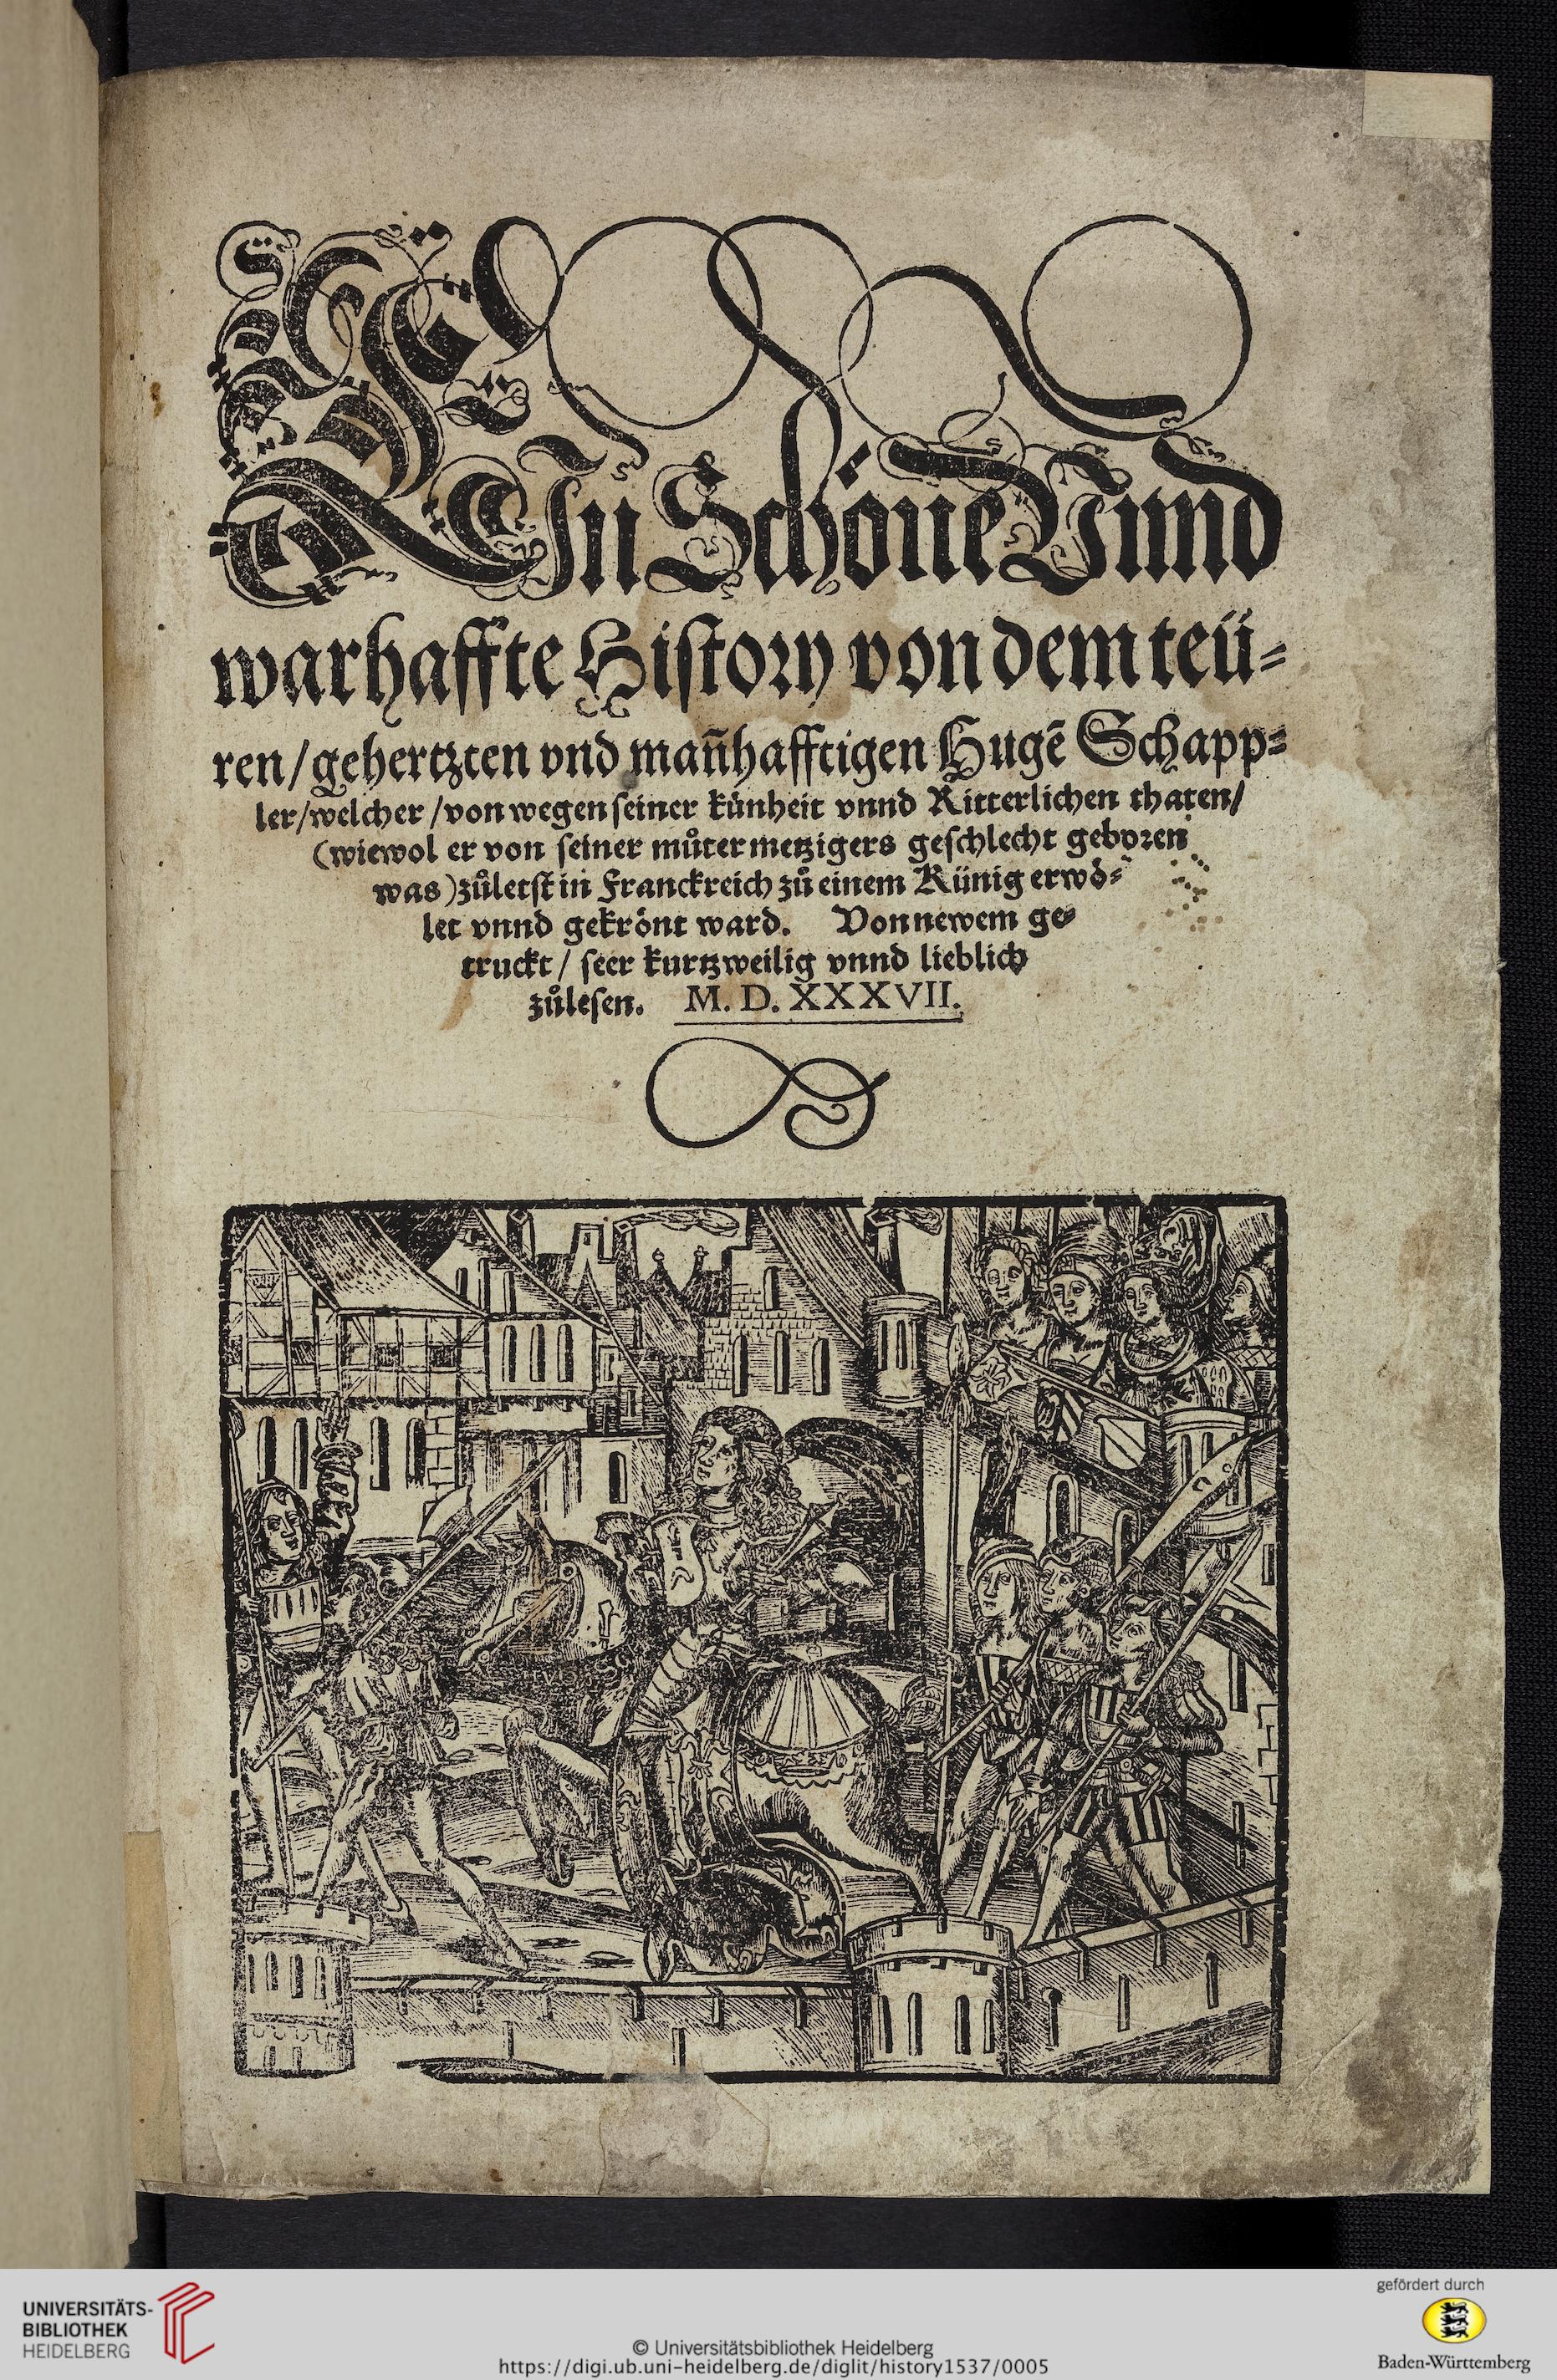 EIn Schöne Vnnd
warhaffte History von dem teü⸗
ren/gehertzten vnd mañhafftigen Hugẽ Schapp⸗
ler/welcher/von wegen seiner kůnheit vnnd Ritterlichen thaten/
(wiewol er von seiner můter metzigers geschlecht geboren
was)zůletst in Franckreich zů einem Künig erwö⸗
let vnnd gekrönt ward. Von newem ge⸗
truckt/ seer kurtzweilig vnnd lieblich
zůlesen. M. D. XXXVII.
UNIVERSITÄTS-
BIBLIOTHEK
HEIDELBERG
© Universitätsbibliothek Heidelberg
https://digi.ub.uni-heidelberg.de/diglit/history1537/0005
gefördert durch
Baden-Württemberg